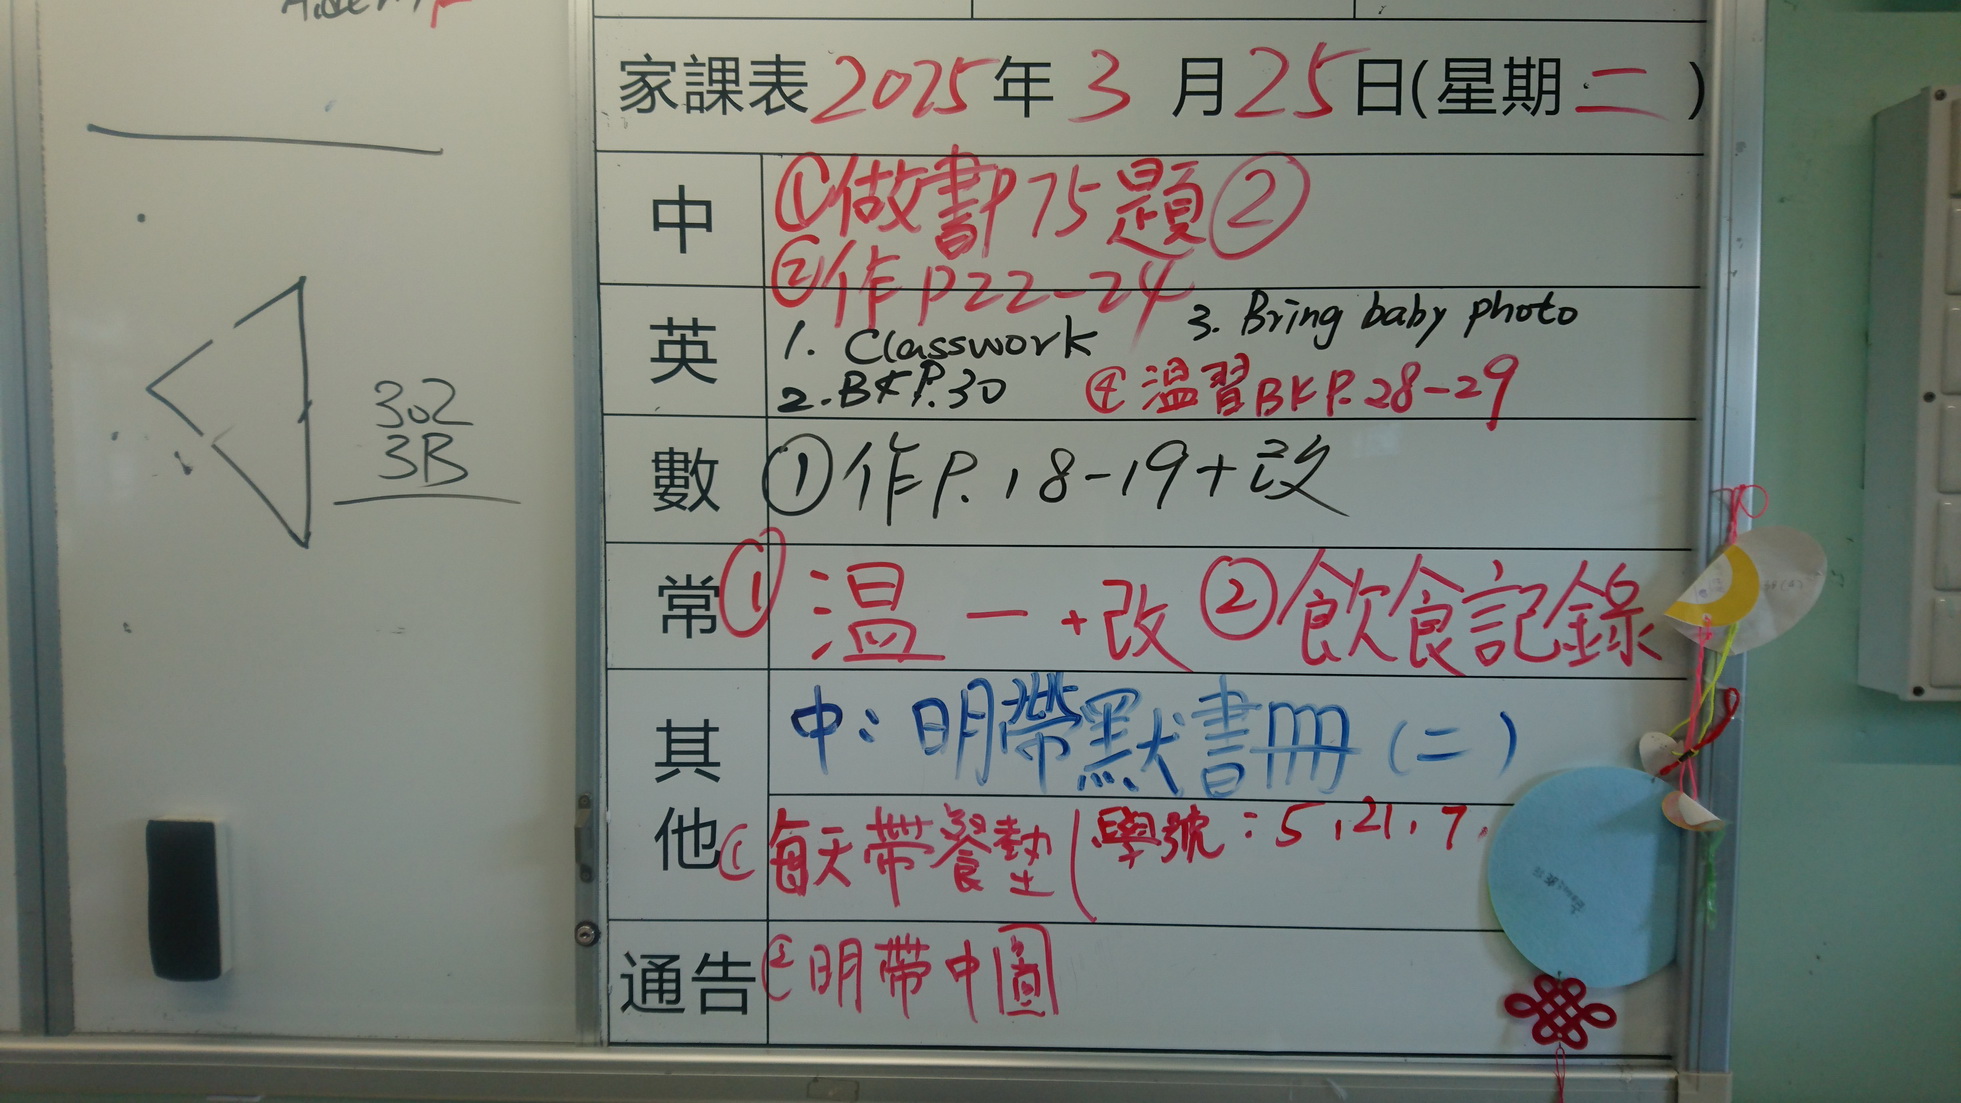 302
3B
家課表 2025年 3 月 25日(星期 二 )
中 ①做書P75題②
②作P22-24
英 1. Classwork 3. Bring baby photo
2. BK P.30 ④溫習BK P.28-29
數 ①作P.18-19+改
常 ①溫一+改 ②飲食記錄
其他 中：明帶默書冊(二)
①每天帶餐墊(學號：5,21,7,
通告 ②明帶中圖